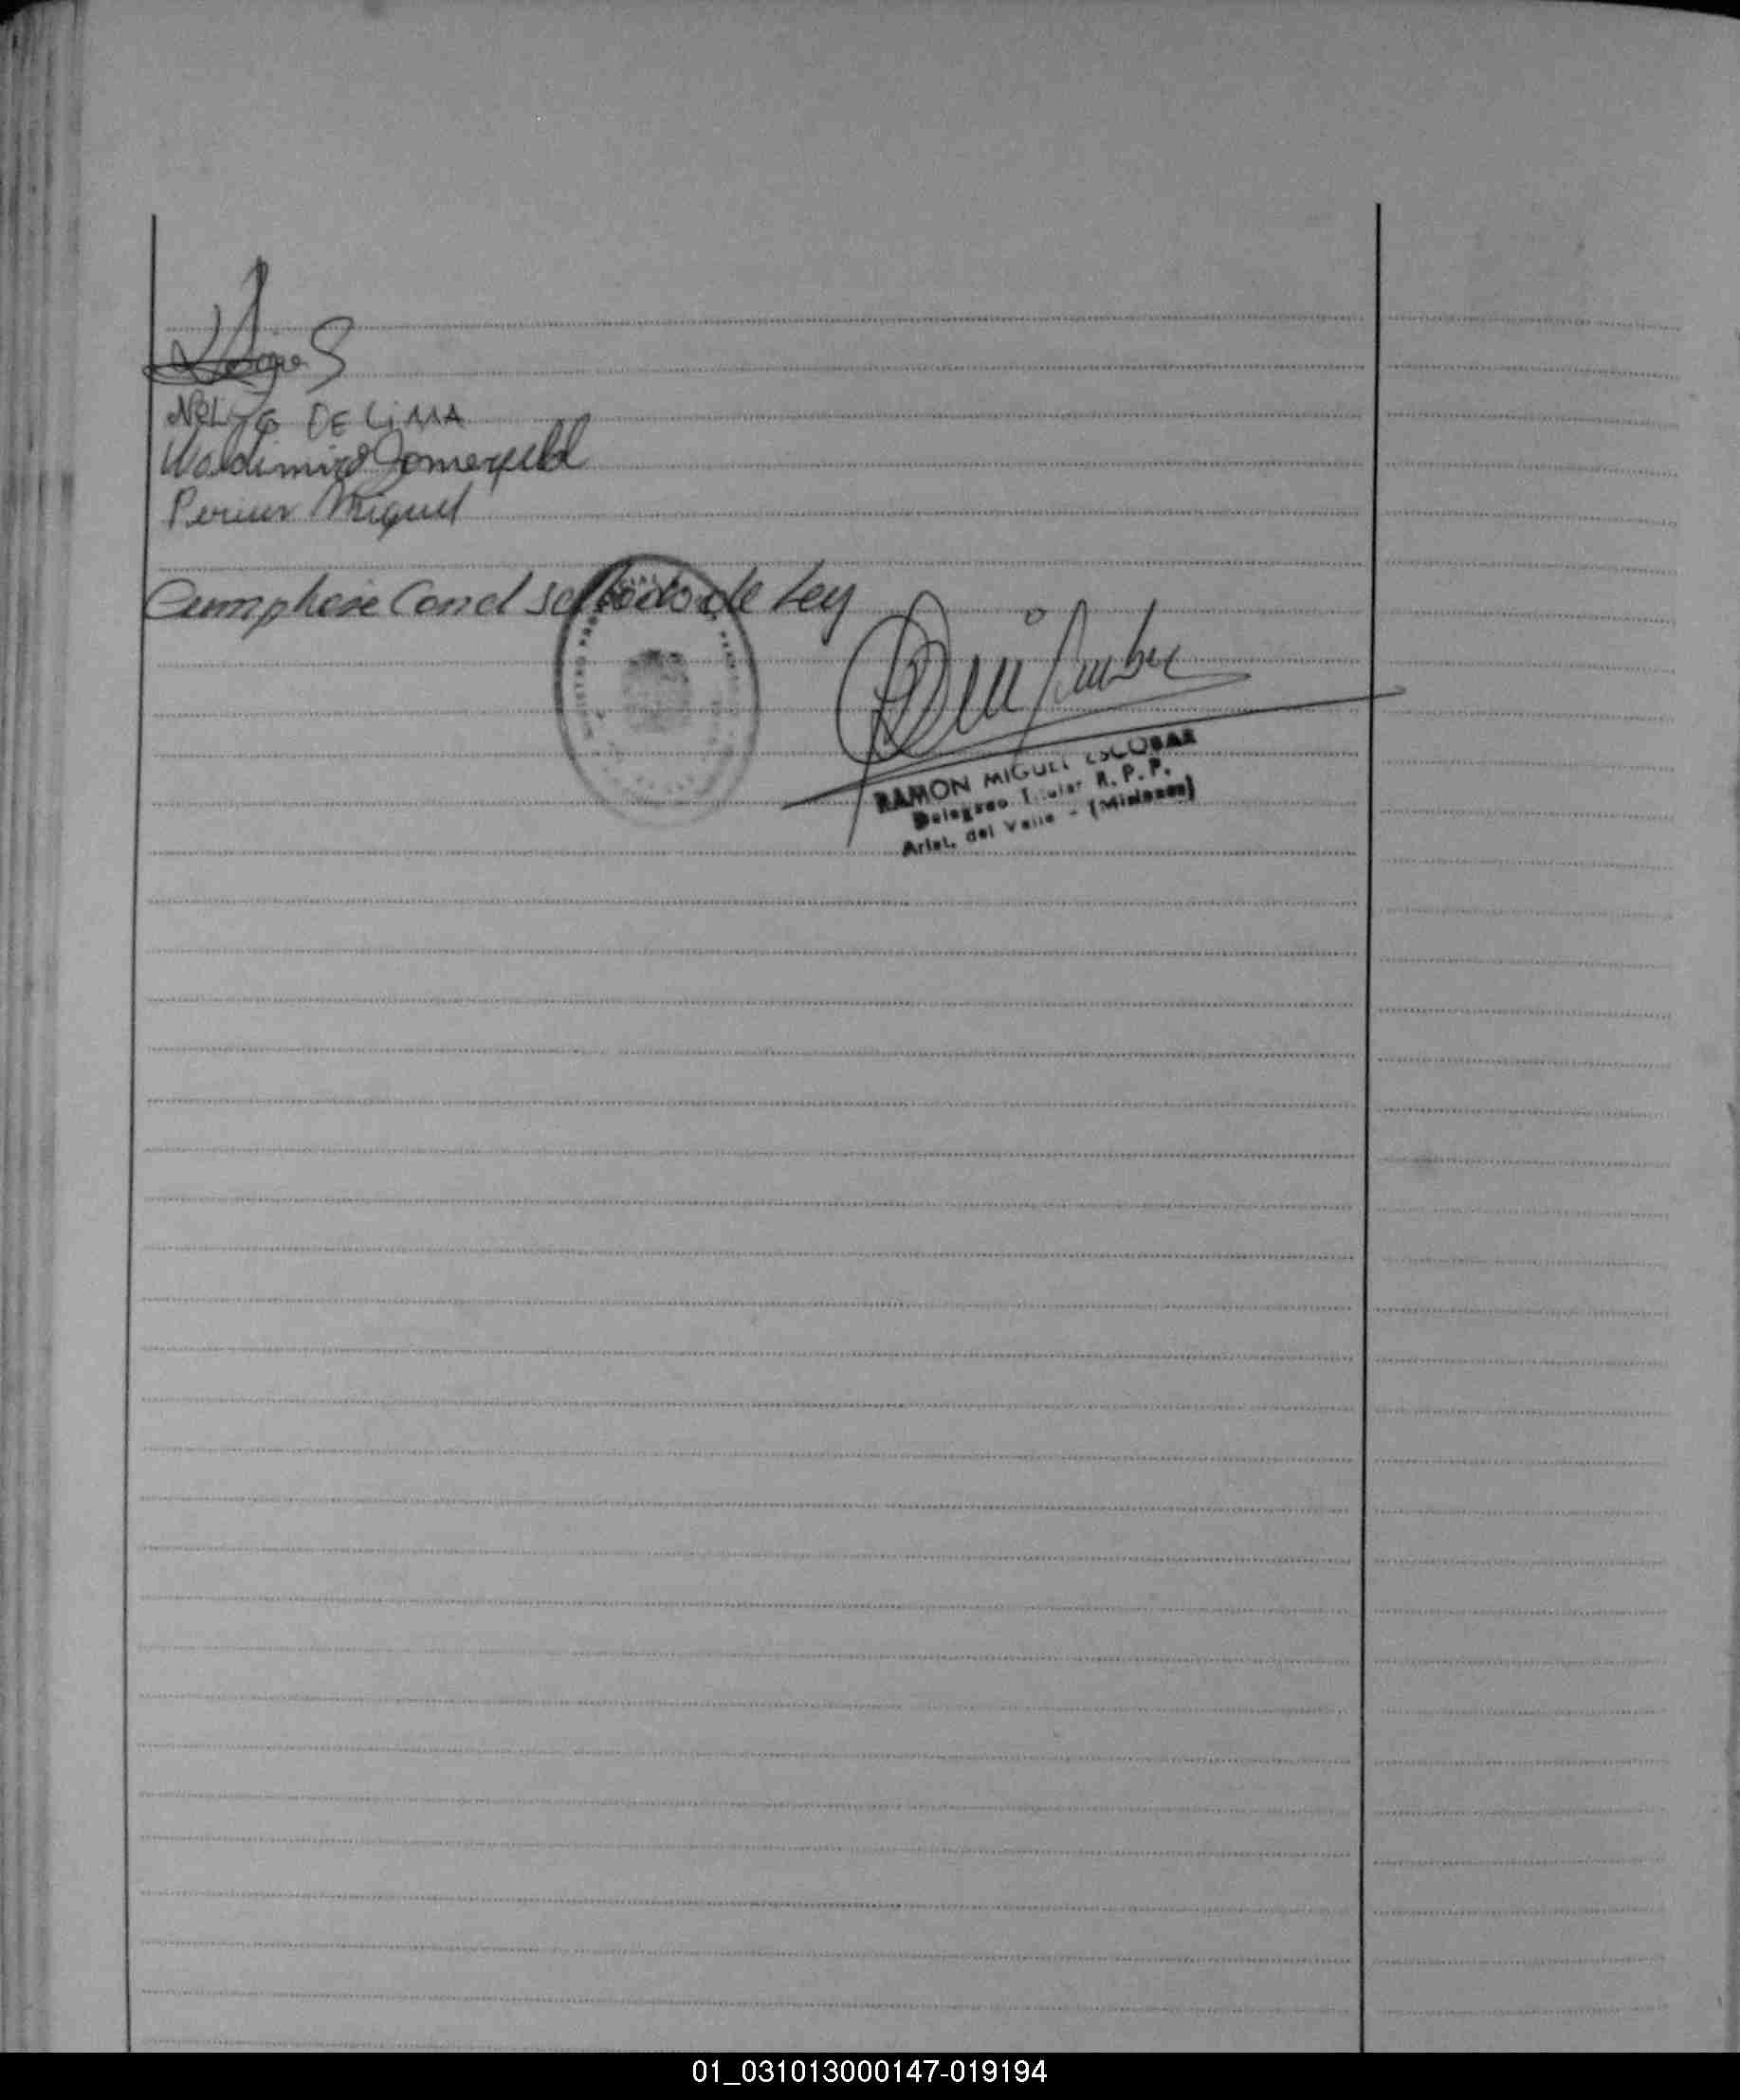 NELY G DE LiMA
Waldimiro Jomerfeld
Miguel
Cumplese Con el sellado de Ley
RAMON MIGUEL ESCOBAR
Delegado Titular R. P. P.
Arist. del Valle - (Misiones)
01_031013000147-019194